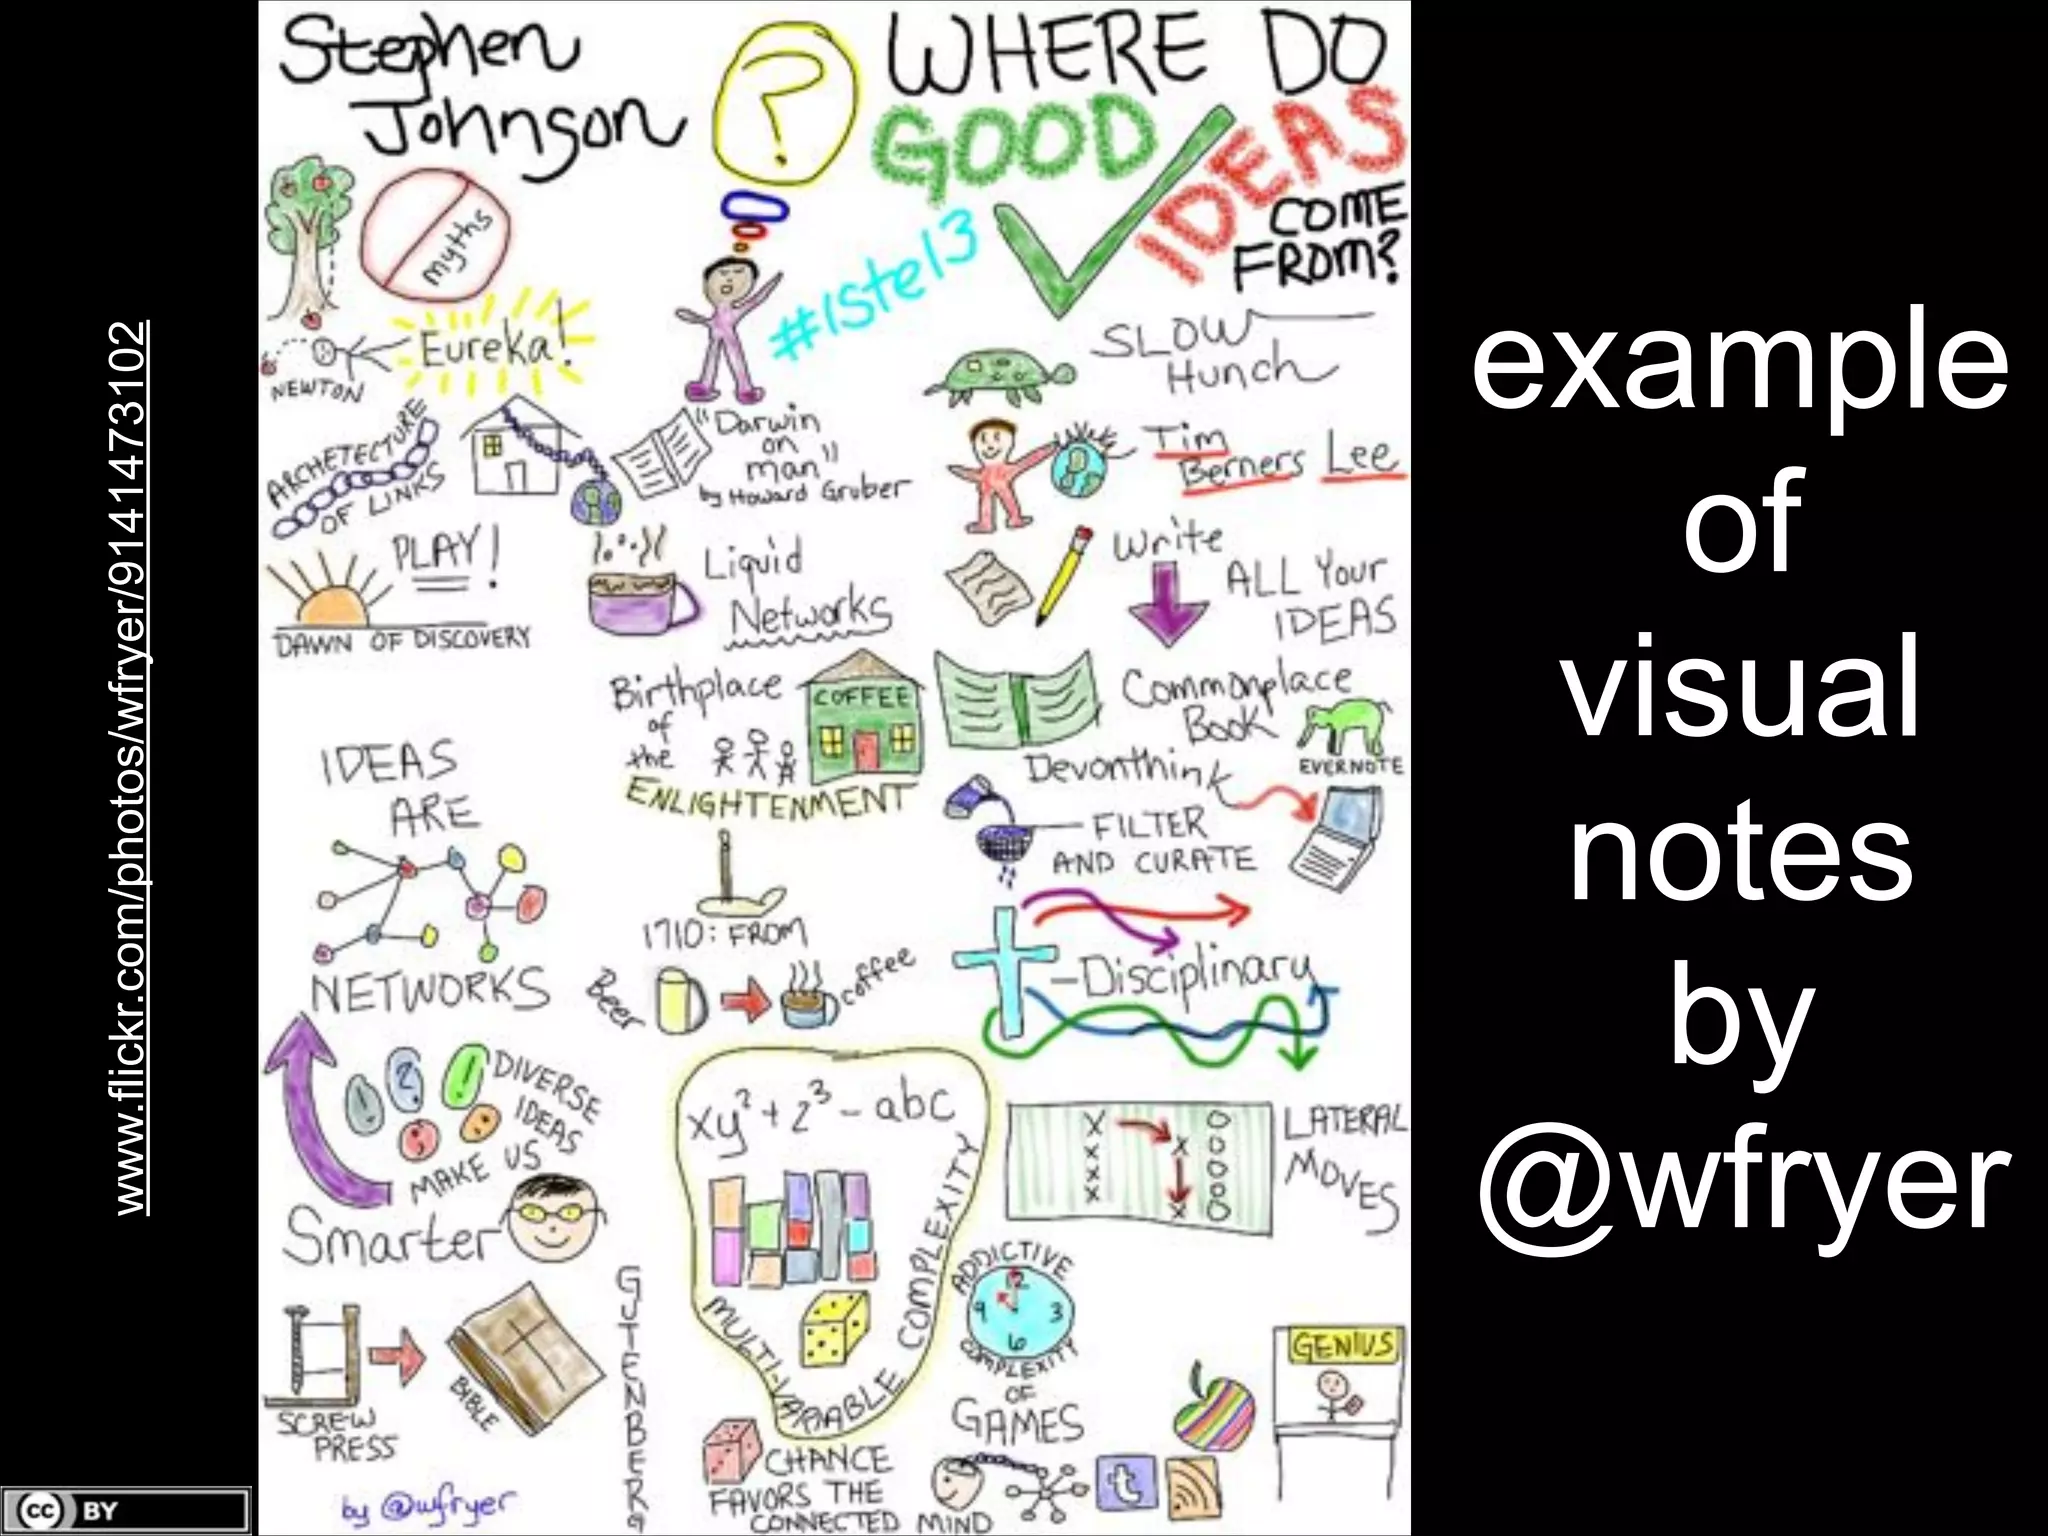 www.flickr.com/photos/wfryer/9141473102
Stephen
Johnson
?
WHERE DO
GOOD
IDEAS
COME
FROM?
#iste13
myths
Eureka!
NEWTON
ARCHETECTURE
OF LINKS
"Darwin
on
man"
by Howard Gruber
PLAY!
DAWN OF DISCOVERY
Liquid
Networks
Birthplace
of
the
ENLIGHTENMENT
COFFEE
1710: FROM
Beer
coffee
SLOW
Hunch
Tim
Berners Lee
Write
ALL Your
IDEAS
Commonplace
Book
EVERNOTE
Devonthink
FILTER
AND CURATE
-Disciplinary
IDEAS
ARE
NETWORKS
! ? !
; :
DIVERSE
IDEAS
MAKE US
Smarter
SCREW
PRESS
BIBLE
GUTENBERG
by @wfryer
xy²+z³-abc
MULTI-VARIABLE COMPLEXITY
CHANCE
FAVORS THE
CONNECTED MIND
X O
X X O
X O
X O
X O
LATERAL
MOVES
ADDICTIVE
12
9 3
6
COMPLEXITY
OF
GAMES
t
GENIUS
example
of
visual
notes
by
@wfryer
cc BY